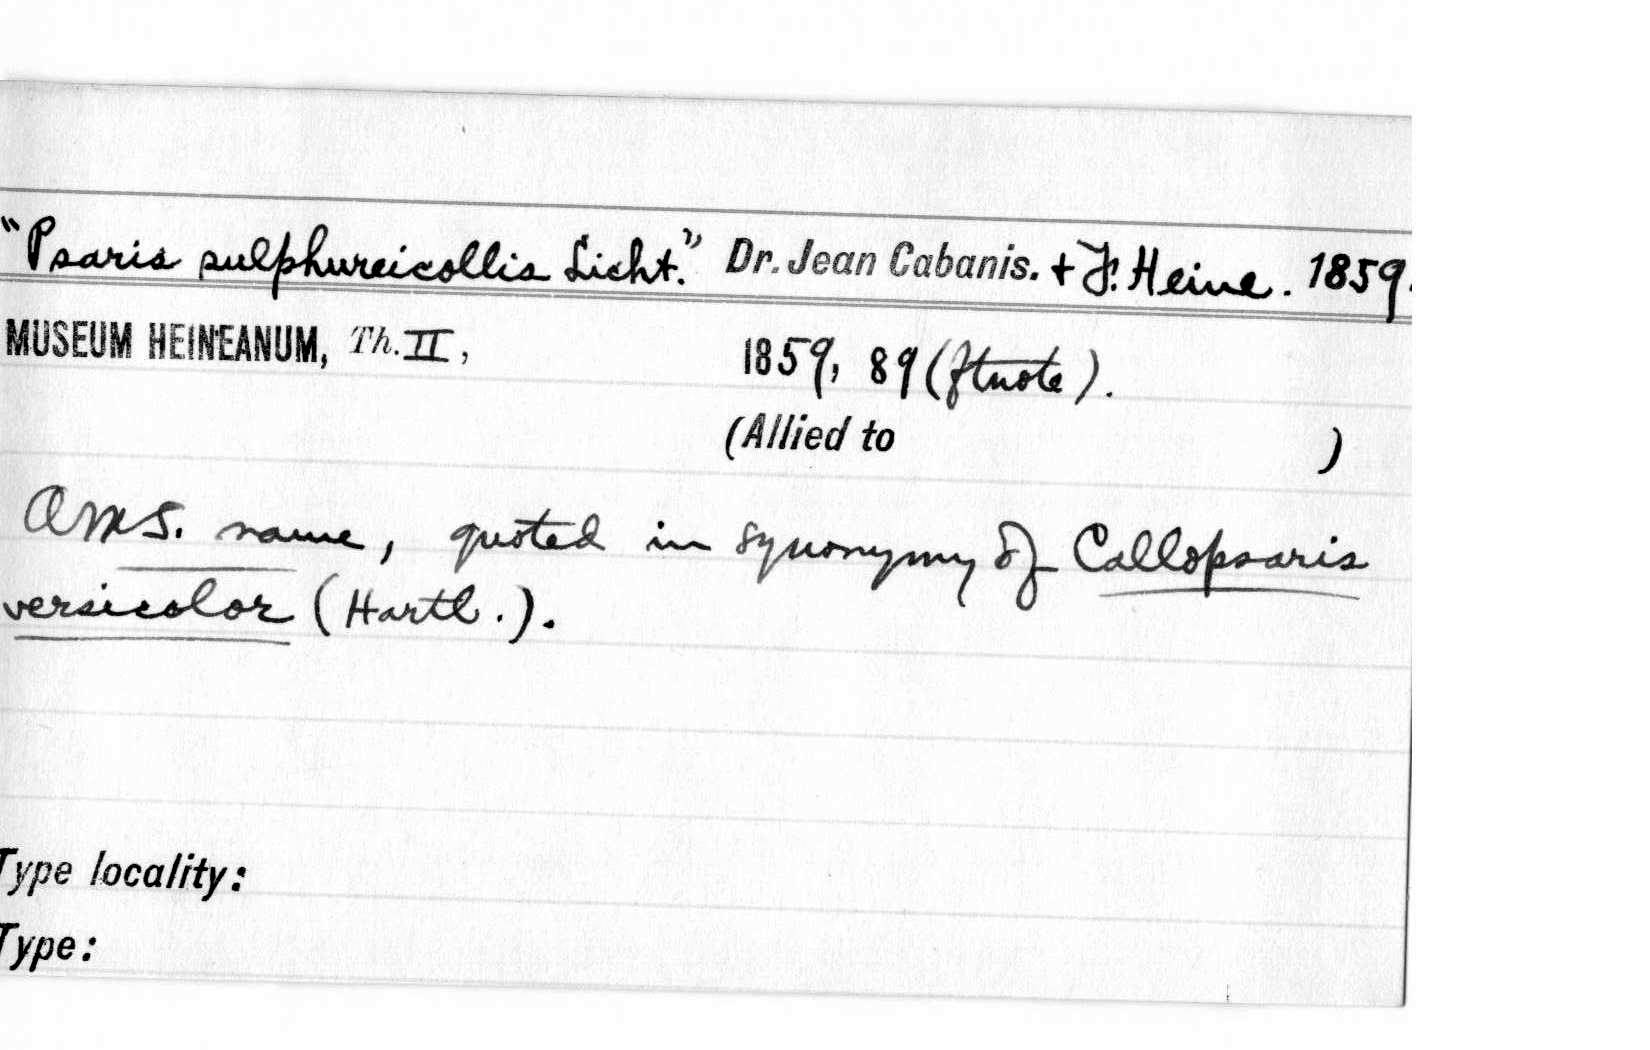 "Psaris sulphureicollis Licht." Dr. Jean Cabanis. + F. Heine. 1859.
MUSEUM HEINEANUM, Th. II, 1859, 89 (ftnote).
(Allied to )
A MS. name, quoted in synonymy of Callopsaris
versicolor (Hartl.).
Type locality:
Type: